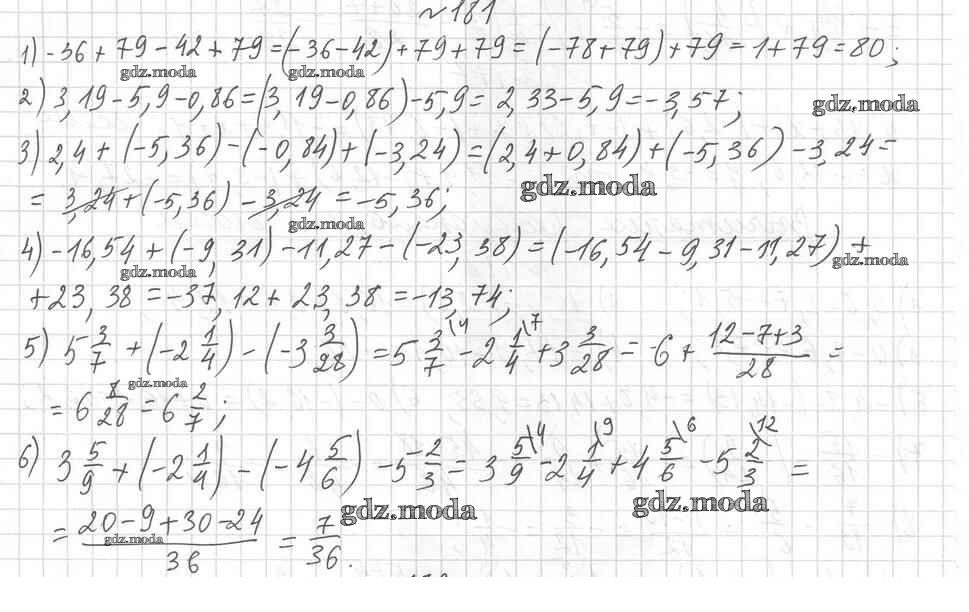 №181
1) -36 + 79 - 42 + 79 = (-36 - 42) + 79 + 79 = (-78 + 79) + 79 = 1 + 79 = 80;
gdz.moda gdz.moda
2) 3,19 - 5,9 - 0,86 = (3,19 - 0,86) - 5,9 = 2,33 - 5,9 = -3,57;
gdz.moda
3) 2,4 + (-5,36) - (-0,84) + (-3,24) = (2,4 + 0,84) + (-5,36) - 3,24 =
gdz.moda
= 3,24 + (-5,36) - 3,24 = -5,36;
gdz.moda
4) -16,54 + (-9,31) - 11,27 - (-23,38) = (-16,54 - 9,31 - 11,27) +
gdz.moda gdz.moda
+ 23,38 = -37,12 + 23,38 = -13,74;
5) 5 3/7 + (-2 1/4) - (-3 3/28) = 5 3/7 \4 - 2 1/4 \7 + 3 3/28 = 6 + (12 - 7 + 3)/28 =
gdz.moda
= 6 8/28 = 6 2/7;
6) 3 5/9 + (-2 1/4) - (-4 5/6) - 5 2/3 = 3 5/9 \4 - 2 1/4 \9 + 4 5/6 \6 - 5 2/3 \12 =
gdz.moda gdz.moda
= (20 - 9 + 30 - 24)/36 = 7/36.
gdz.moda